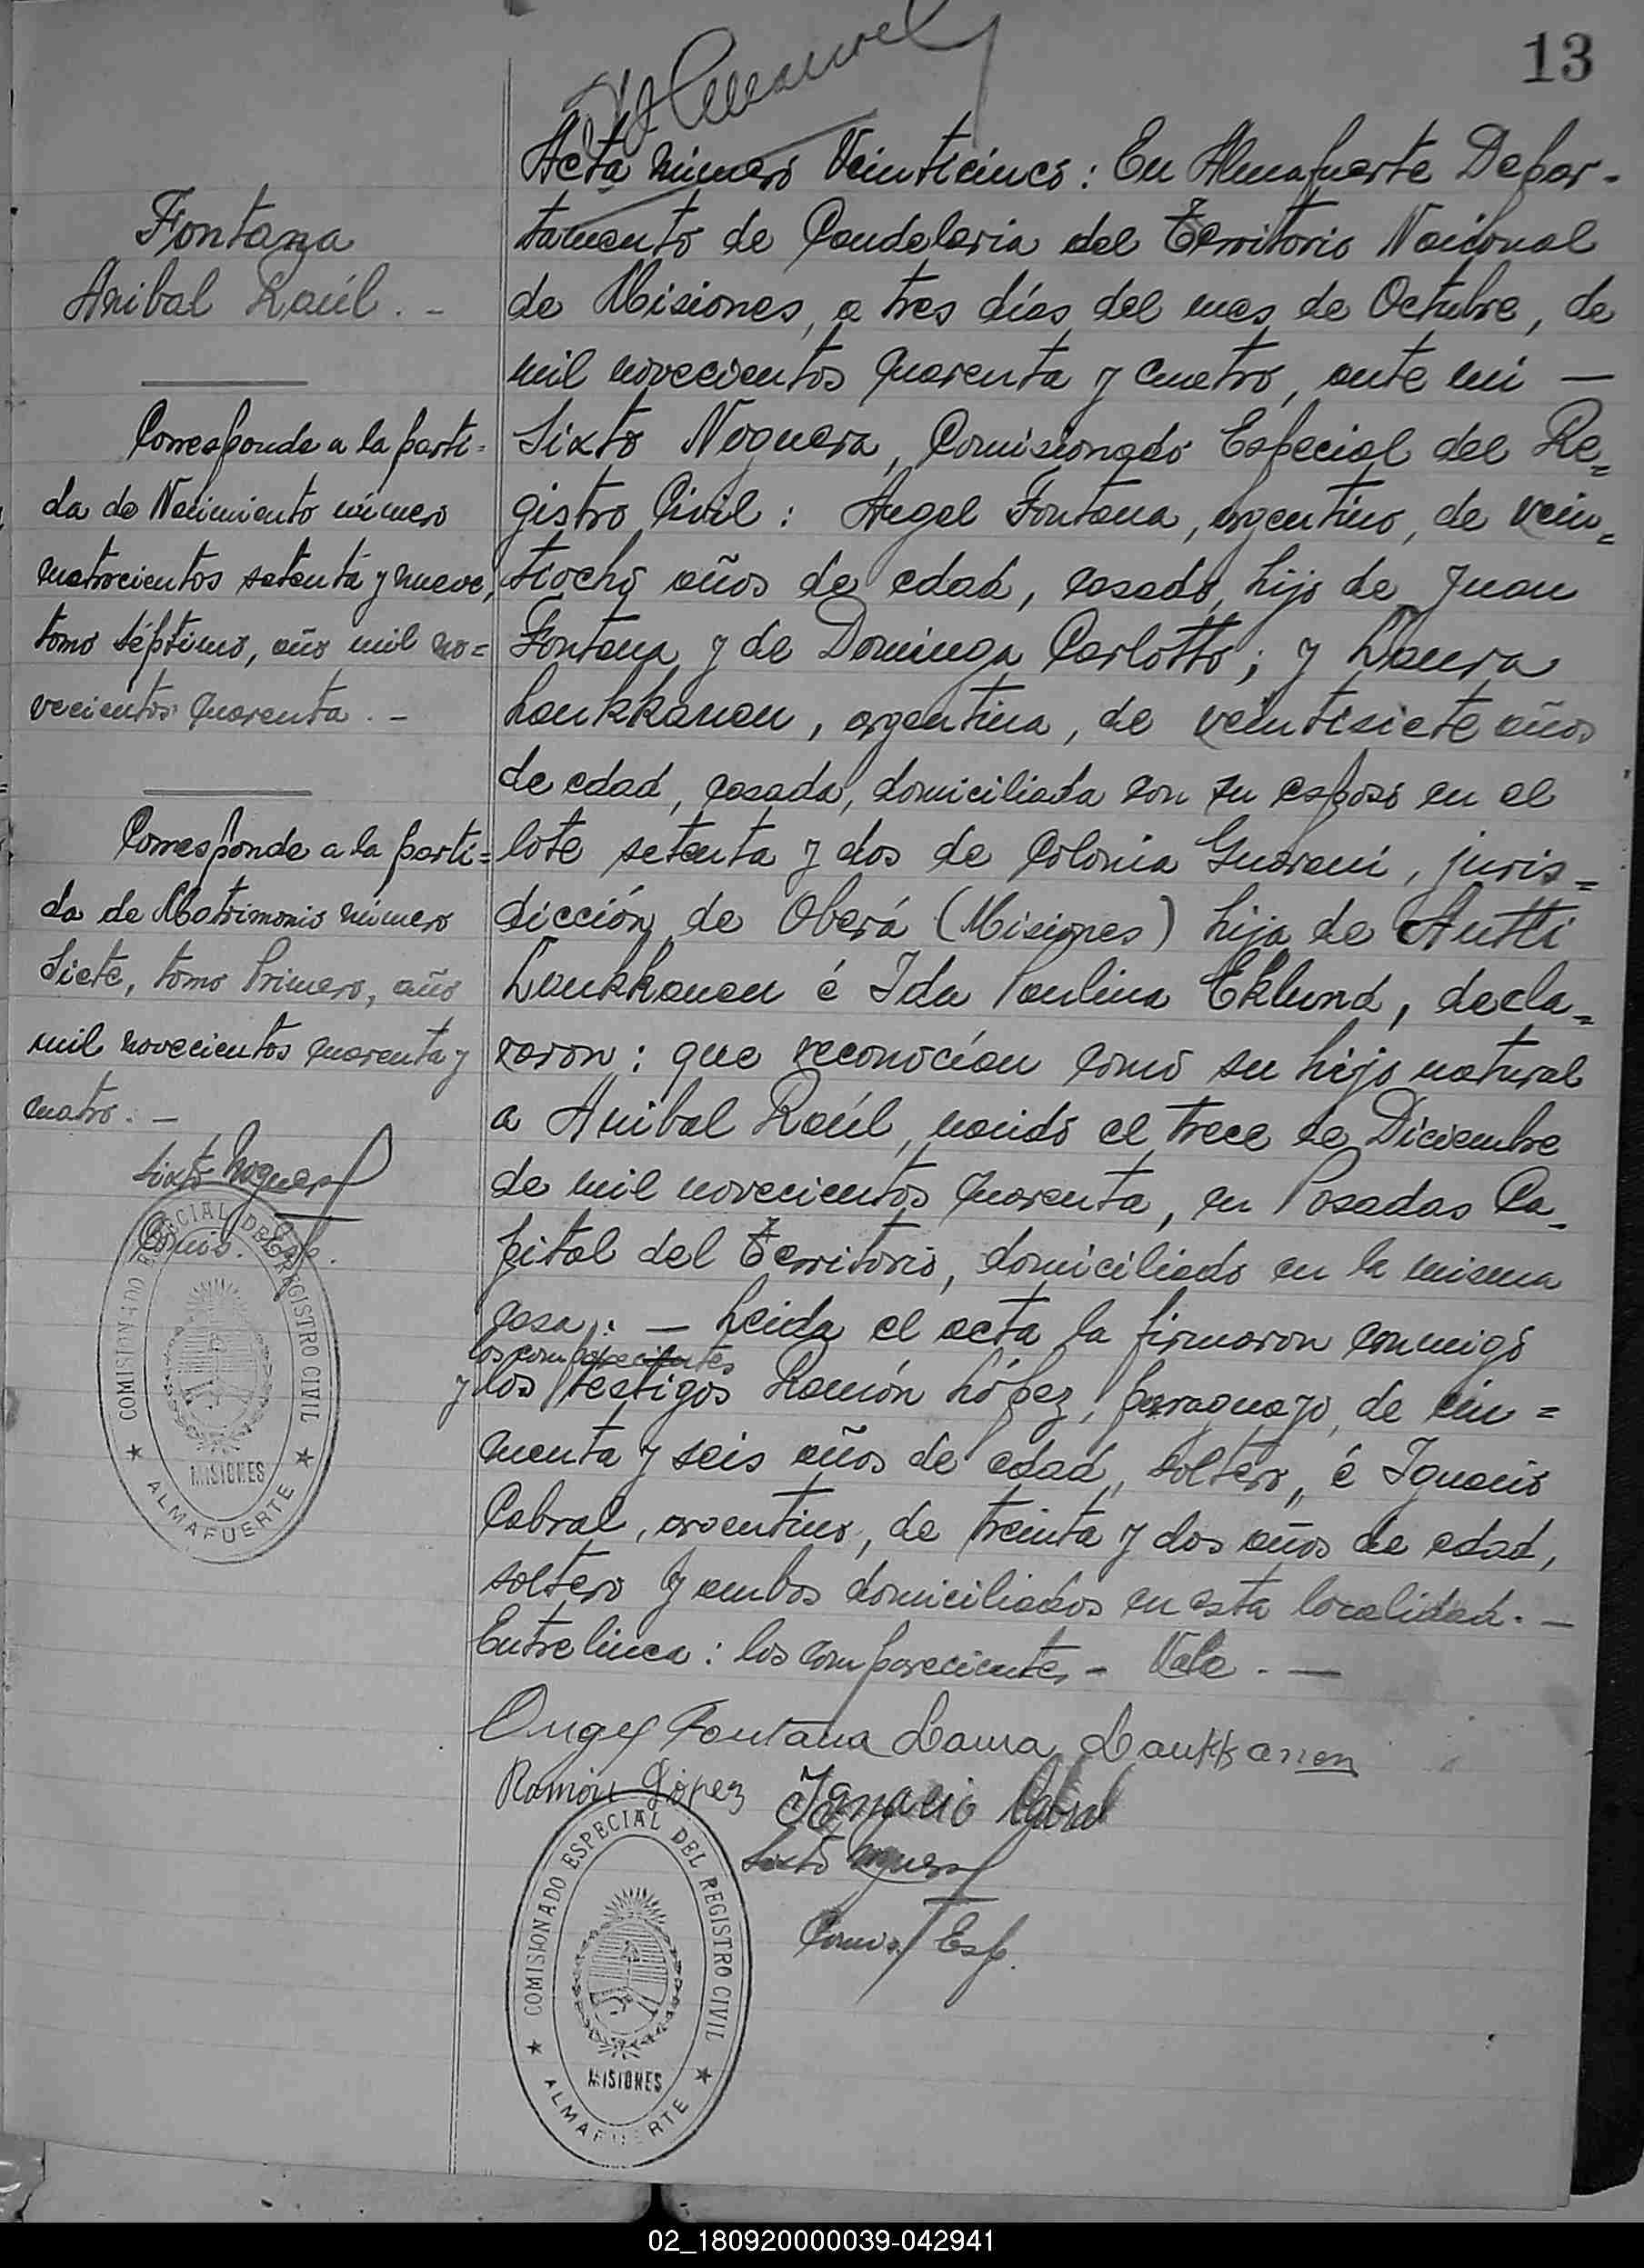 13
Acta número Veinticinco: En Almafuerte Depar-
tamento de Candelaria del Territorio Nacional
de Misiones, a tres días del mes de Octubre, de
mil novecientos cuarenta y cuatro, ante mi —
Sixto Noguera, Comisionado Especial del Re=
gistro Civil: Angel Fontana, argentino, de vein=
tiocho años de edad, casado, hijo de Juan
Fontana y de Dominga Carlotto; y Laura
Laukkanen, argentina, de veintisiete años
de edad, casada, domiciliada con su esposo en el
lote setenta y dos de Colonia Guaraní, juris=
dicción de Oberá (Misiones) hija de Antti
Laukkanen é Ida Paulina Eklund, decla=
raron: que reconocían como su hijo natural
a Anibal Raúl, nacido el trece de Diciembre
de mil novecientos cuarenta, en Posadas Ca-
pital del Territorio, domiciliado en la misma
casa: — Leida el acta la firmaron conmigo
los comparecientes
y los testigos Ramón López, paraguayo, de cin=
cuenta y seis años de edad, soltero, é Ignacio
Cabral, argentino, de treinta y dos años de edad,
soltero y ambos domiciliados en esta localidad. —
Entre linea: los comparecientes - Vale. —
Angel Fontana Laura Laukkanen
Ramón López Ignacio Cabral
Sixto Noguera
Comis. Esp.
COMISIONADO ESPECIAL DEL REGISTRO CIVIL
MISIONES
ALMAFUERTE
Fontana
Anibal Raúl. -
Corresponde a la parti-
da de Nacimiento número
cuatrocientos setenta y nueve,
tomo séptimo, año mil no=
vecientos cuarenta. -
Corresponde a la parti=
da de Matrimonio número
Siete, tomo Primero, año
mil novecientos cuarenta y
cuatro. —
Sixto Noguera
Comis. Esp.
COMISIONADO ESPECIAL DEL REGISTRO CIVIL
MISIONES
ALMAFUERTE
02_180920000039-042941